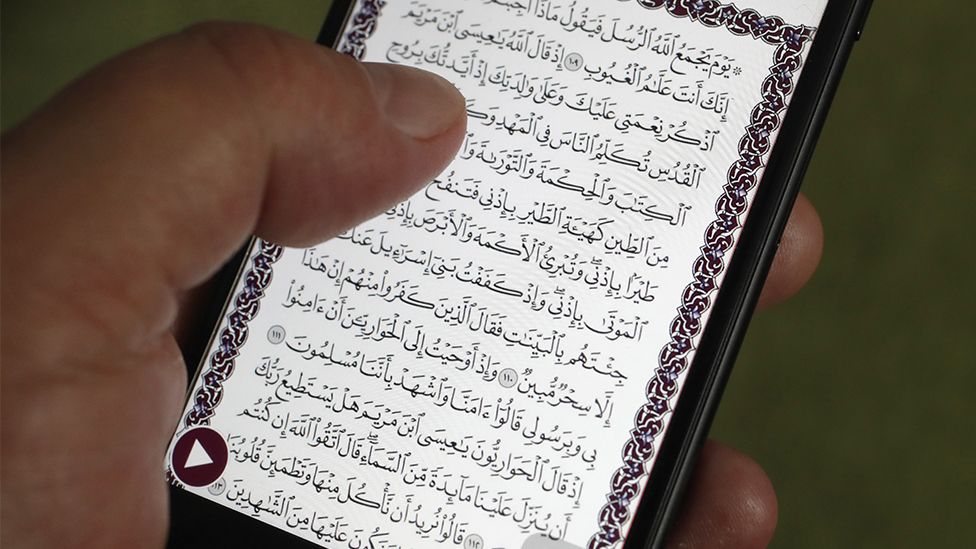 ۞ يَوْمَ يَجْمَعُ ٱللَّهُ ٱلرُّسُلَ فَيَقُولُ مَاذَآ أُجِبْتُمْ
إِنَّكَ أَنتَ عَلَّٰمُ ٱلْغُيُوبِ ١٠٩ إِذْ قَالَ ٱللَّهُ يَٰعِيسَى ٱبْنَ مَرْيَمَ
ٱذْكُرْ نِعْمَتِى عَلَيْكَ وَعَلَىٰ وَٰلِدَتِكَ إِذْ أَيَّدتُّكَ بِرُوحِ
ٱلْقُدُسِ تُكَلِّمُ ٱلنَّاسَ فِى ٱلْمَهْدِ
ٱلْكِتَٰبَ وَٱلْحِكْمَةَ وَٱلتَّوْرَىٰةَ
مِنَ ٱلطِّينِ كَهَيْـَٔةِ ٱلطَّيْرِ بِإِذْنِى فَتَنفُخُ
طَيْرًۢا بِإِذْنِىۖ وَتُبْرِئُ ٱلْأَكْمَهَ وَٱلْأَبْرَصَ بِإِذْنِى
ٱلْمَوْتَىٰ بِإِذْنِىۖ وَإِذْ كَفَفْتُ بَنِىٓ إِسْرَٰٓءِيلَ عَنكَ
جِئْتَهُم بِٱلْبَيِّنَٰتِ فَقَالَ ٱلَّذِينَ كَفَرُوا۟ مِنْهُمْ إِنْ هَٰذَآ
إِلَّا سِحْرٌ مُّبِينٌ ١١٠ وَإِذْ أَوْحَيْتُ إِلَى ٱلْحَوَارِيِّـۧنَ أَنْ ءَامِنُوا۟
بِى وَبِرَسُولِى قَالُوٓا۟ ءَامَنَّا وَٱشْهَدْ بِأَنَّنَا مُسْلِمُونَ ١١١
إِذْ قَالَ ٱلْحَوَارِيُّونَ يَٰعِيسَى ٱبْنَ مَرْيَمَ هَلْ يَسْتَطِيعُ رَبُّكَ
أَن يُنَزِّلَ عَلَيْنَا مَآئِدَةً مِّنَ ٱلسَّمَآءِۖ قَالَ ٱتَّقُوا۟ ٱللَّهَ إِن كُنتُم
١١٢ قَالُوا۟ نُرِيدُ أَن نَّأْكُلَ مِنْهَا وَتَطْمَئِنَّ قُلُوبُنَا
وَنَكُونَ عَلَيْهَا مِنَ ٱلشَّٰهِدِينَ ١١٣